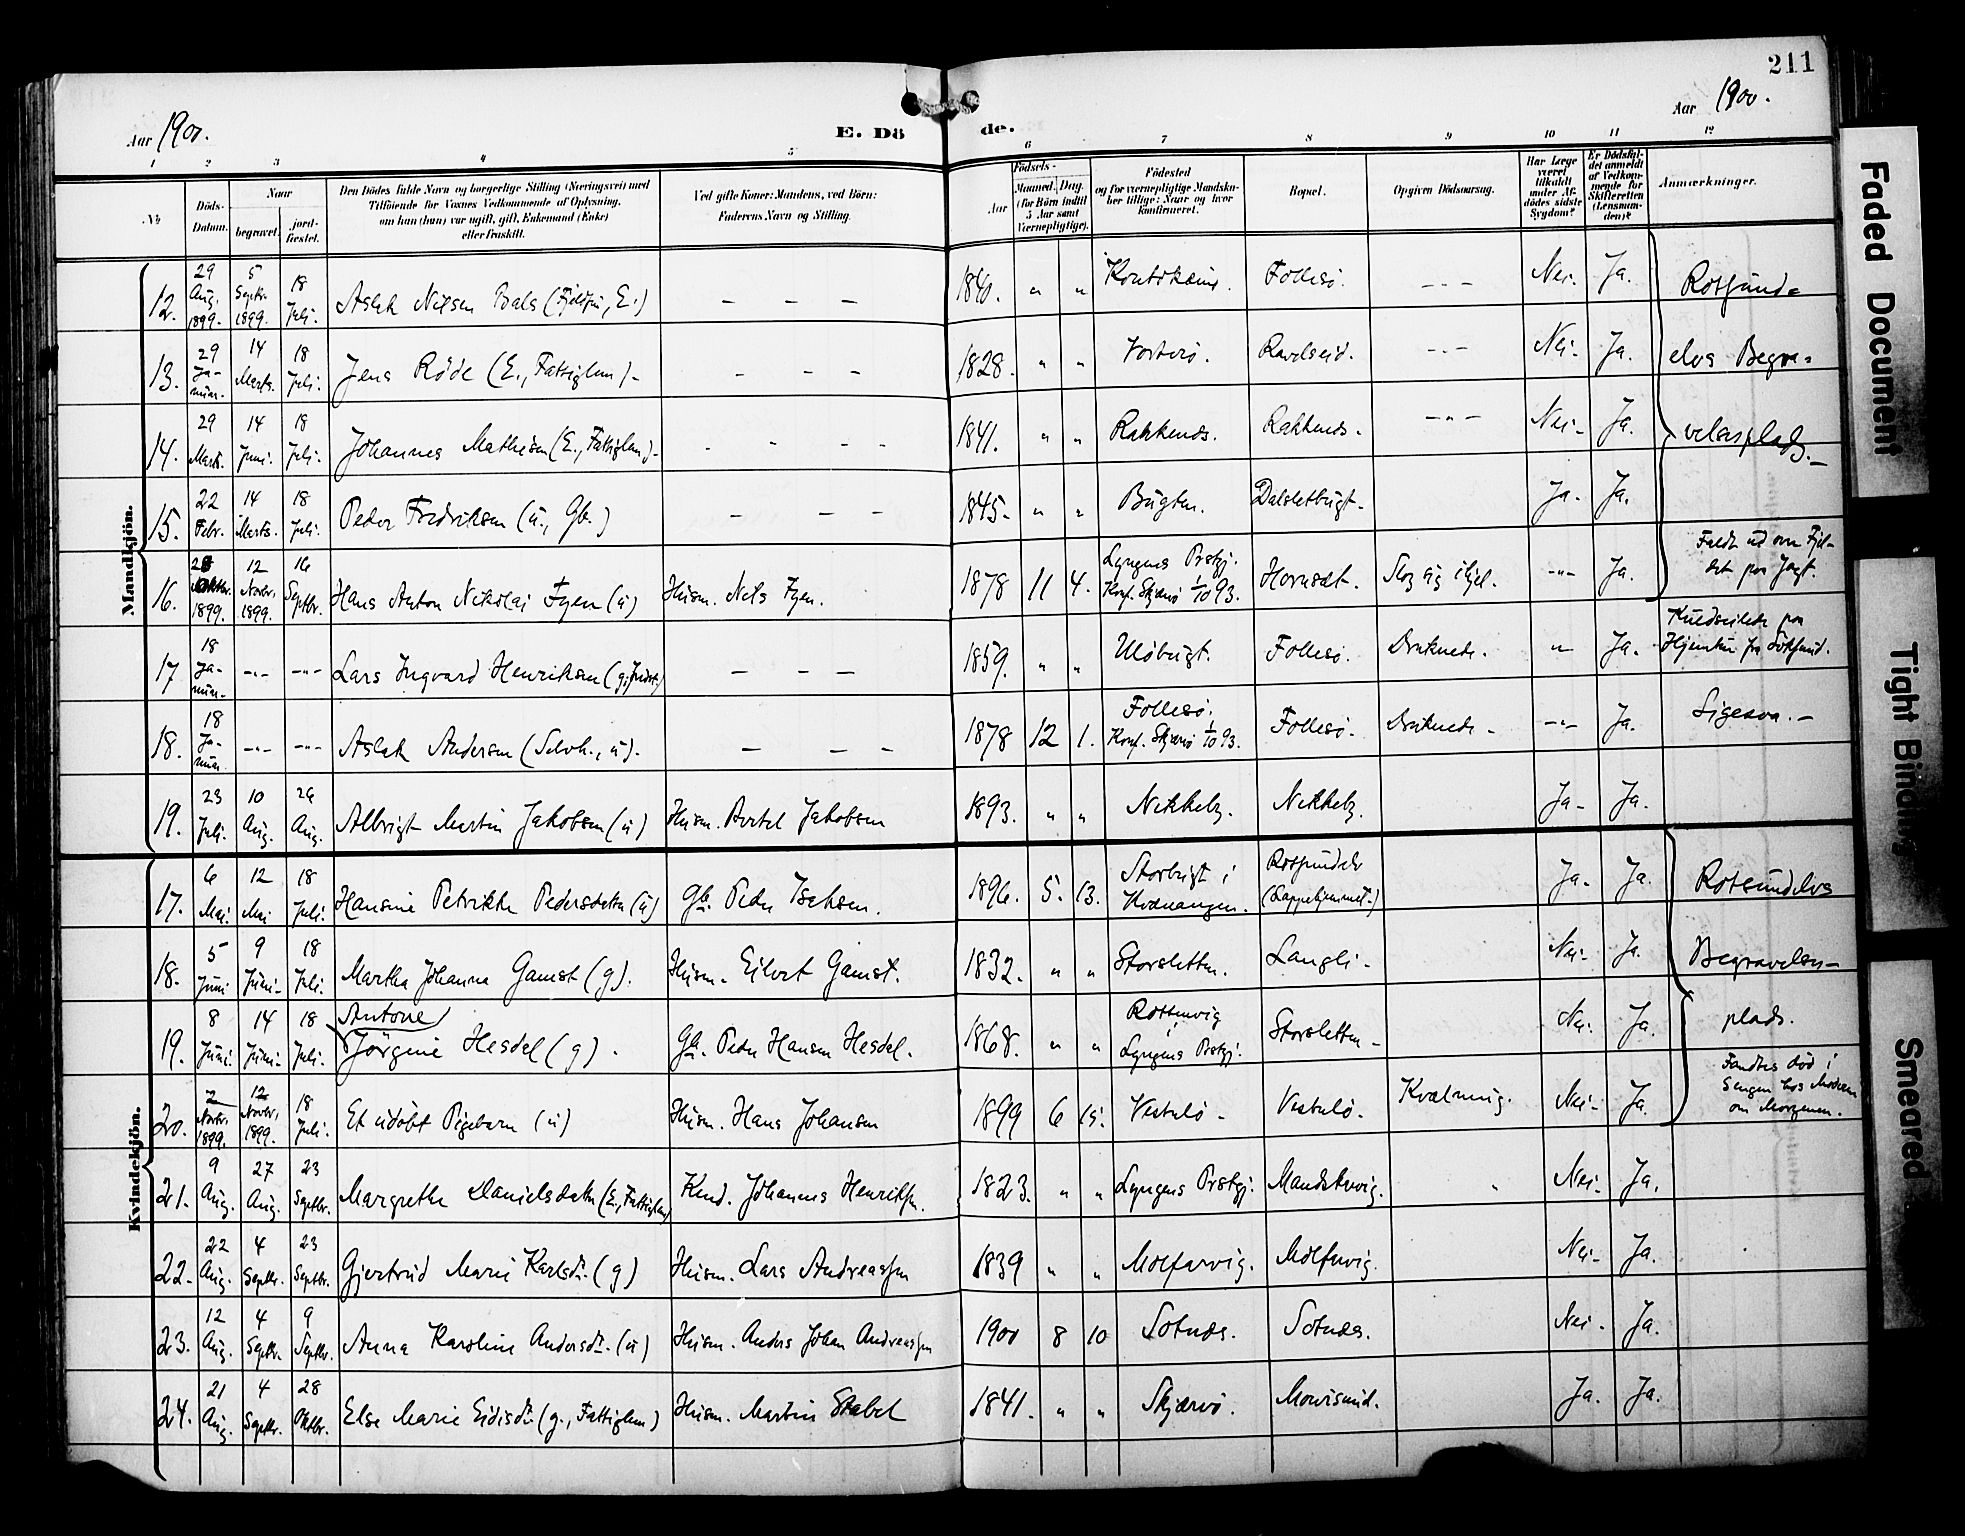 211
Aar 1900.
E. Döde.
Aar 1900.
1 2 3 4 5 6 7 8 9 10 11 12
No.
Döds-Datum.
Naar
begravet.
jord-fæstet.
Den Dödes fulde Navn og borgerlige Stilling (Næringsvei) med
Tilföiende for Voxnes Vedkommende af Oplysning,
om han (hun) var ugift, gift, Enkemand (Enke)
eller fraskilt.
Ved gifte Koner: Mandens, ved Börn:
Faderens Navn og Stilling.
Födsels-
Aar
Maaned. Dag.
(for Börn indtil
5 Aar samt
Værnepligtige).
Födested
og for værnepligtige Mandskaber tillige: Naar og hvor konfirmeret.
Bopæl.
Opgiven Dödsaarsag.
Har Læge været tilkaldt under Afdödes sidste Sygdom?
Er Dödsfaldet anmeldt af Vedkommende for Skifteretten (Lensmanden)?
Anmærkninger.
Mandkjön.
12. 29 Aug. 1899. 5 Septbr. 1899. 18 Juli. Aslak Nilsen Bals (Fjeldfin, E.) – – – 1840. " " Kontokeino. Follesö. -"- Nei. Ja. Rotsund-
13. 29 Januar. 14 Marts. 18 Juli. Jens Röde (E., Fattiglem) – – – 1828. " " Vorterö. Ravelseid. -"- Nei. Ja. elvs Begra-
14. 29 Marts. 14 Juni. 18 Juli. Johannes Mathisen (E., Fattiglem). - - - 1841. " " Rakkenes. Rakkenes. -"- Nei. Ja. velsesplads.
15. 22 Febr. 14 Marts. 18 Juli. Peder Fredriksen (u., Gb.) – – – 1845. " " Bugten. Dalsletbugt. Ja. Ja.
16. Oktbr. 1899. 12 Novbr. 1899. 16 Septbr. Hans Anton Nikolai Fyen (u) Husm. Nils Fyen. 1878 11 4. Lyngens Prstgj. Konf. Skjærvö 1/10 93. Hornset. Slog sig ihjel. -"- Ja. Faldt ud over Fjeldet paa Jagt.
17. 18 Januar. -"- -"- Lars Ingvard Henriksen – – – 1859. " " Ulöbugt. Follesö. Druknede. " Ja. Kuldseilede paa Hjemtur fra
18. 18 Januar. -"- -"- Aslak Andersen (Selvh., u). – – – 1878 12 1. Follesö. Konf. Skjærvö 1/10 93. Follesö. Druknede. -"- Ja. Ligesaa.
19. 23 Juli. 10 Aug. 29 Aug. Albrigt Martin Jakobsen (u) Husm. Bertel Jakobsen 1893. " " Nikkelv. Nikkelv. Ja. Ja.
Kvindekjön.
17. 6 Mai. 12 Mai 18 Juli. Hansine Petrikke Pedersdatter (u) Gb. Peder Isaksen. 1896. 5. 13. Storbugt i Kvænangen. Rotsundelv (Lappehjemmet.) Ja. Ja. Rotsundelvs
18. 5 Juni 9 Juni. 18 Juli. Martha Johanna Gamst (g). Husm. Eilert Gamst. 1832. " " Storsletten. Langli. Nei. Ja. Begravelses-
19. 8 Juni. 14 Juni. 18 Juli. Antone Jörgine Hesdel (g). Gb. Peder Hansen Hesdel. 1868. " " Rottenvig i Lyngens Prstgj. Storsletten. Nei. Ja. plads.
20. 2 Novbr. 1899. 12 Novbr. 1899. 18 Juli. Et udöbt Pigebarn (u) Husm. Hans Johansen 1899 6 15. Vestulö. Vestulö. Kvælning. Nei. Ja. Fandtes död i Sengen hos Moderen om Morgenen.
21. 9 Aug. 27 Aug. 23 Septbr. Margrethe Danielsdatter (E., Fattiglem) Johannes Henriksen. 1823. " " Lyngens Prstgj. Mandskarvig. Nei. Ja.
22. 22 Aug. 4 Septbr. 23 Septbr. Gjertrud Marie Karlsdtr. (g) Husm. Lars Andreassen 1839 " " Molfarvig. Molfarvig. Nei. Ja.
23. 12 Aug. 4 Septbr. 9 Septbr. Anna Karoline Andersdtr. (u) Husm. Anders Johan Andreassen 1900 8 10 Sotnæs. Sotnæs. Nei. Ja.
24. 21 Aug. 4 Septbr. 28 Oktbr. Else Marie Eidisdtr. (g., Fattiglem) Husm. Martin Stabel 1841. " " Skjærvö. Maursund. Ja. Ja.
Faded Document
Tight Binding
Smeared